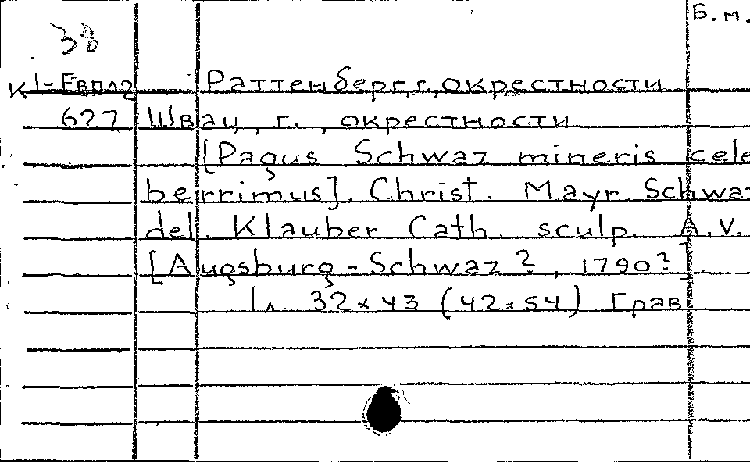 Б.м.
38
К1-Евпл2 Раттенберг, г., окрестности
627 Швац, г., окрестности
[Pagus Schwaz mineris cele
berrimus]. Christ. Mayr. Schwaz
del. Klauber Cath. sculp. A.V.
[Augsburg-Schwaz?, 1790?]
1л. 32×43 (42×54) Грав